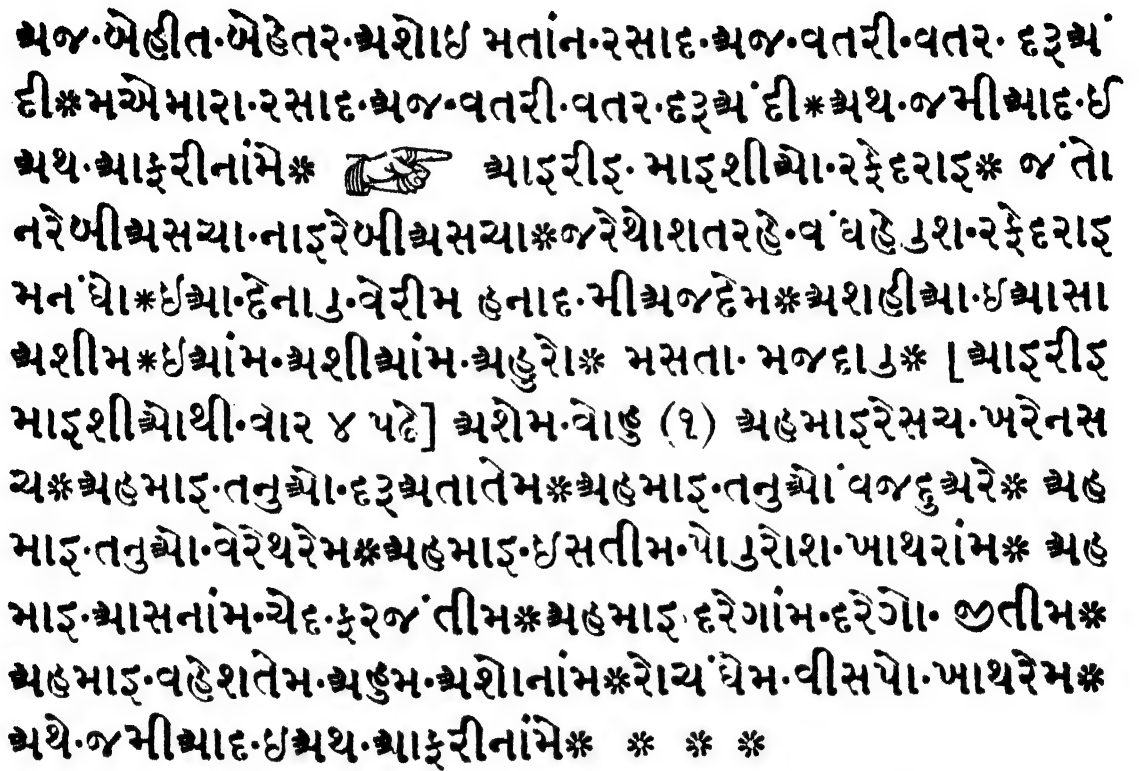 અજ·બેહીત·બેહેતર·અશોઇ મતાંન·રસાદ·અજ·વતરી·વતર· દરૂઅં
દી*મએમારા·રસાદ·અજ·વતરી·વતર·દરૂઅંદી*અથ·જમીઆદ·ઈ
અથ·આફરીનાંમે* ☞ આઇરીઇ· માઇશીઓ·રફેદરાઇ* જંતો
નરેબીઅસચા·નાઇરેબીઅસચા*જરેથોશતરહે·વંઘહેઉશ·રફેદરાઇ
મનંઘો*ઇઆ·દેનાઉ·વેરીમ હનાદ·મીઅજદેમ*અશહીઆ·ઇઆસા
અશીમ*ઇઆંમ·અશીઆંમ·અહુરો* મસતા· મજદાઉ* [આઇરીઇ
માઇશીઓથી·વાર ૪ પઢે] અશેમ·વોહુ (૧) અહમાઇરેસચ·ખરેનસ
ચ*અહમાઇ·તનુઓ·દરૂઅતાતેમ*અહમાઇ·તનુઓ વંજદુઅરે* અહ
માઇ·તનુઓ·વેરેથરેમ*અહમાઇ·ઇસતીમ·પોઉરોશ·ખાથરાંમ* અહ
માઇ·આસનાંમ·ચેદ·ફરજંતીમ*અહમાઇ·દરેગાંમ·દરેગો· જીતીમ*
અહમાઇ·વહેશતેમ·અહુમ·અશોનાંમ*રોચંઘેમ·વીસપો·ખાથરેમ*
અથે·જમીઆદ·ઇઅથ·આફરીનાંમે* * * *